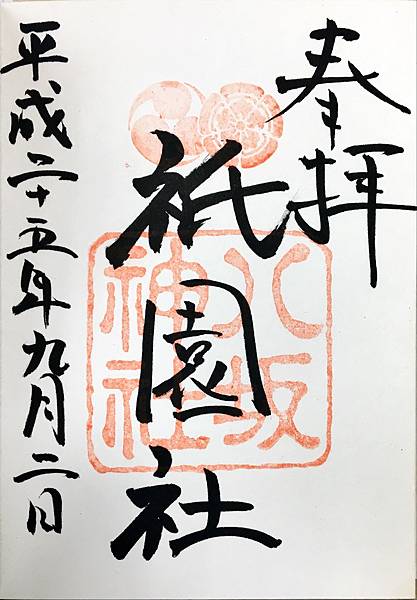 奉拝
祇園社
八坂
神社
平成二十五年九月二日